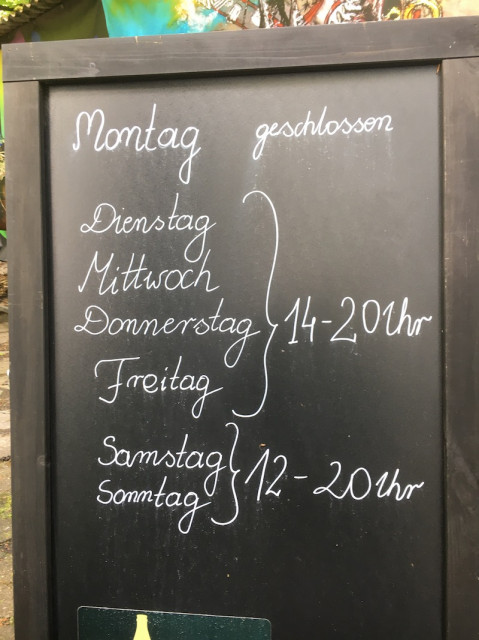 Montag geschlossen
Dienstag
Mittwoch
Donnerstag 14-20 Uhr
Freitag
Samstag
Sonntag 12-20 Uhr